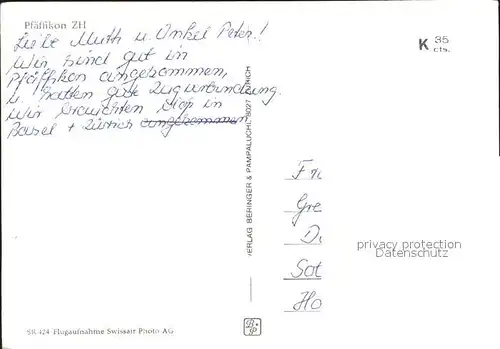 Pfäffikon ZH
Liebe Muth u. Onkel Peter!
Wir sind gut in
Pfäffikon angekommen,
u. hatten gute Zugverbindung.
Wir brauchten in
Basel + Zürich angekommen
K 35
cts.
VERLAG BERINGER & PAMPALUCHI, 8027 ZÜRICH
Fr
Gre
D
Sot
Ho
privacy protection
Datenschutz
SR 424 Flugaufnahme Swissair Photo AG
B+P